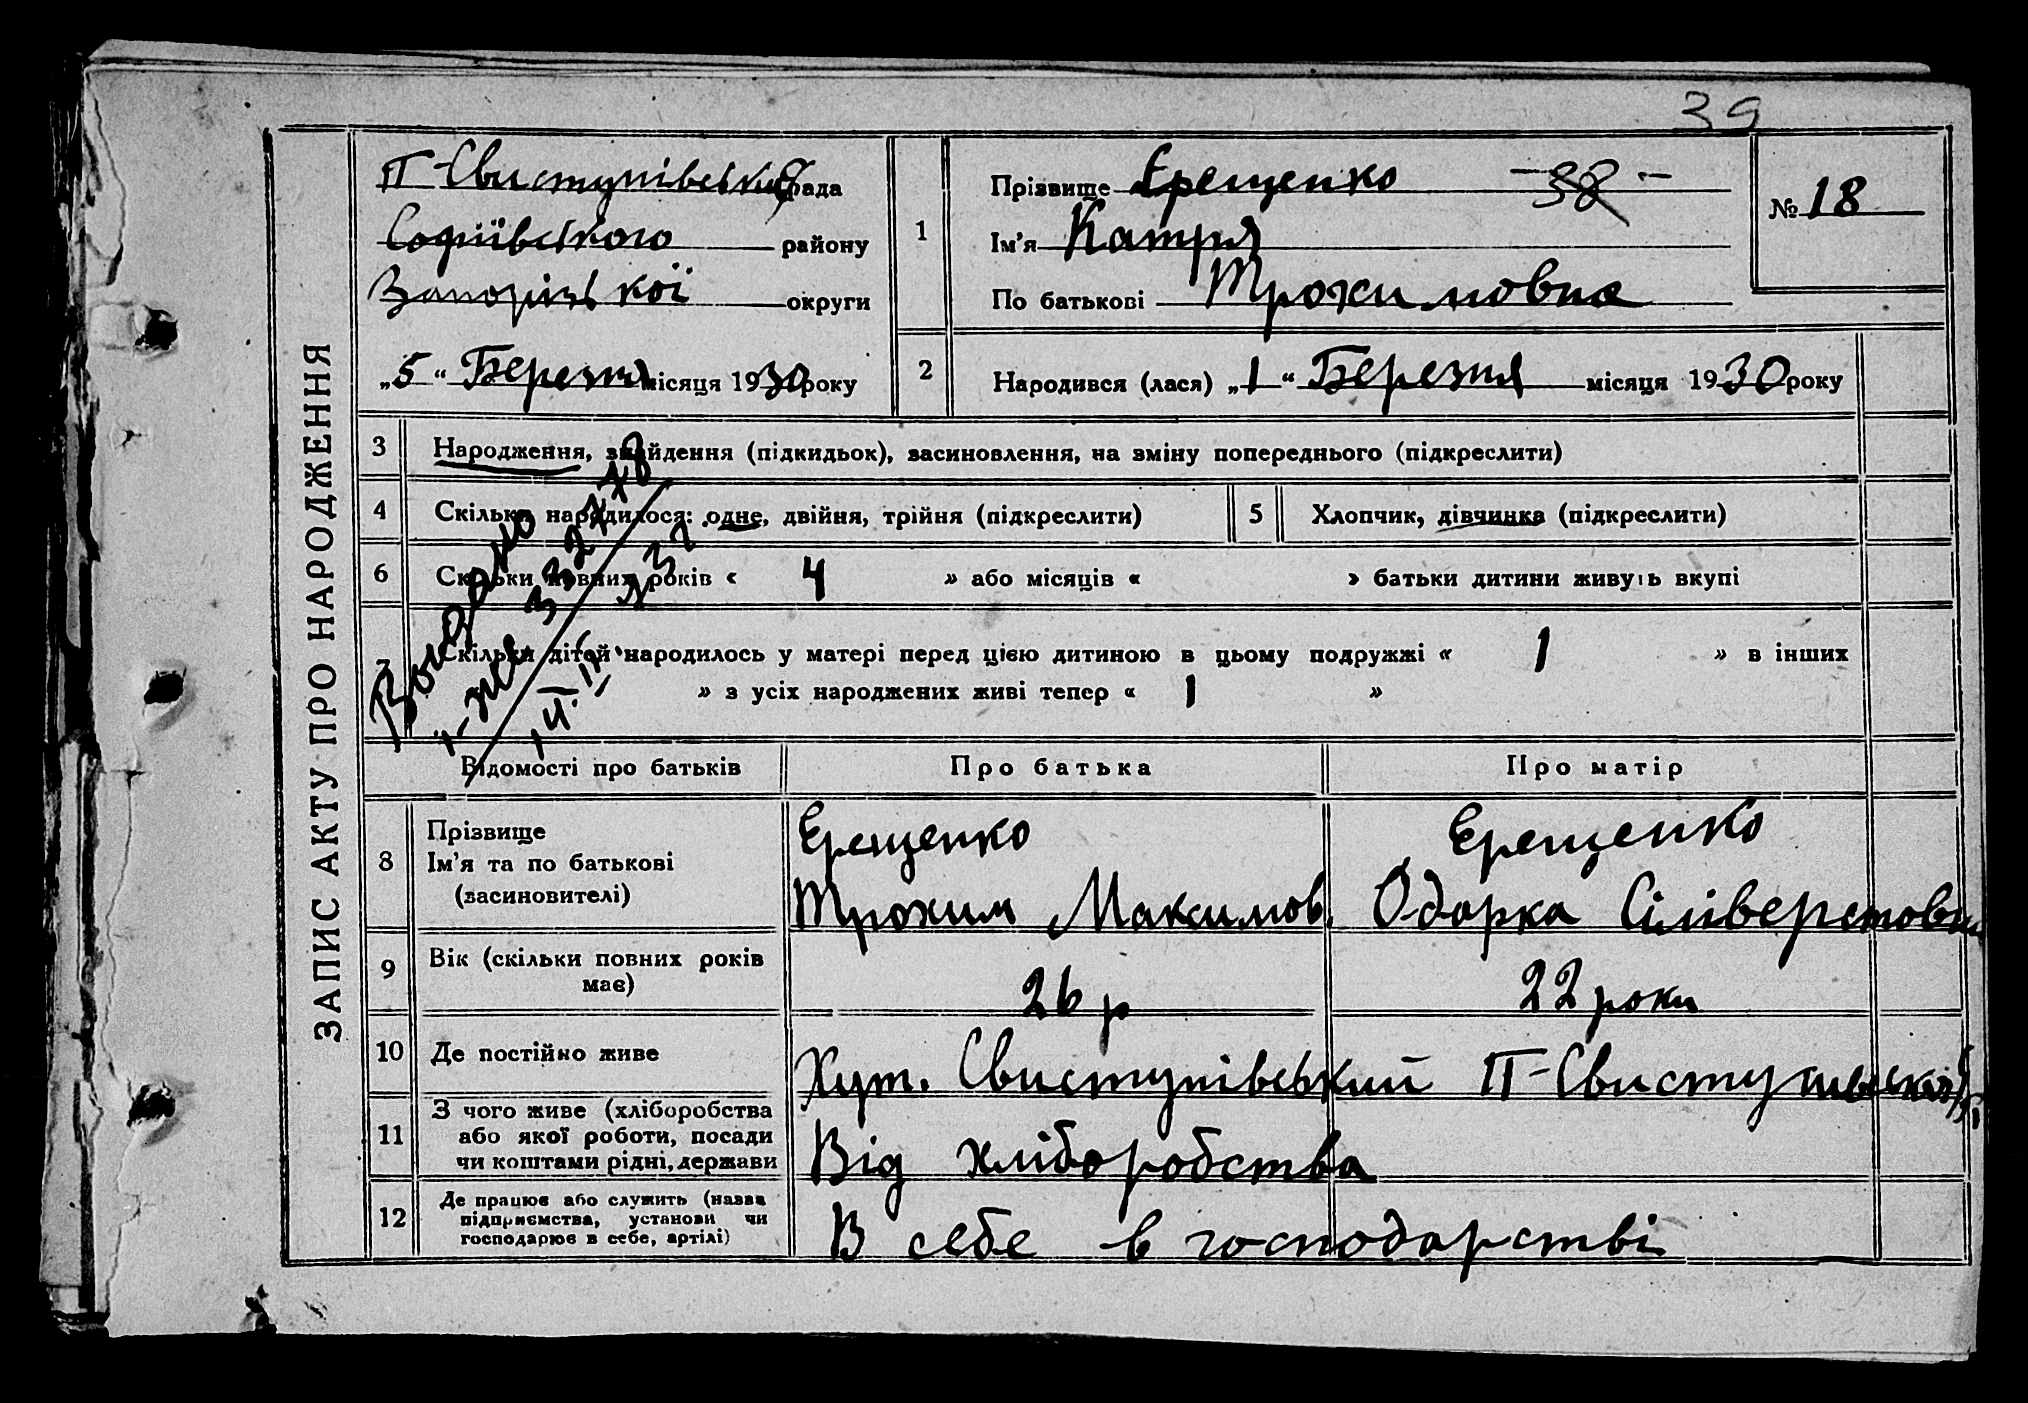 39
ЗАПИС АКТУ ПРО НАРОДЖЕННЯ
П-Свистунівська рада
Софиївського району
Запорізької округи
„5“ Березня місяця 1930 року
1
Прізвище Єрещенко
-38-
Ім'я Катря
По батькові Трохимовна
№ 18
2
Народився (лася) „1“ Березня місяця 1930 року
3 Народження, знайдення (підкидьок), засиновлення, на зміну попереднього (підкреслити)
4 Скільки народилося: одне, двійня, трійня (підкреслити) 5 Хлопчик, дівчинка (підкреслити)
6 Скільки повних років « 4 » або місяців « » батьки дитини живуть вкупі
7 Скільки дітей народилось у матері перед цією дитиною в цьому подружжі « 1 » в інших
» з усіх народжених живі тепер « 1 »
Відомості про батьків Про батька Про матір
8 Прізвище
Ім'я та по батькові
(засиновителі)
Єрещенко Єрещенко
Трохим Максимов. Одарка Сіліверстовна
9 Вік (скільки повних років має) 26 р 22 роки
10 Де постійно живе Хут. Свистунівський П-Свистунівської
11 З чого живе (хліборобства
або якої роботи, посади
чи коштами рідні, держави
Від хліборобства
12 Де працює або служить (назва
підприємства, установи чи
господарює в себе, артілі)
В себе в господарстві